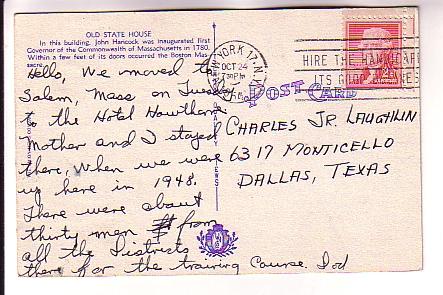 OLD STATE HOUSE
In this building, John Hancock was inaugurated first
Governor of the Commonwealth of Massachusetts in 1780.
Within a few feet of its doors occurred the Boston Mas-
sacre.
Hello, We moved to
Salem, Mass on Tuesday
to the Hotel Hawthorne
Mother and I stayed
there, When we were
up here in 1948.
There were about
thirty men from
all the Districts
there for the training Course. Dod
NEW YORK 17, N.Y.
OCT 24
7 30 PM
HIRE THE HANDICAPPED
ITS GOOD BUSINESS
POST CARD
CHARLES JR. LAUGHLIN
6317 MONTICELLO
DALLAS, TEXAS